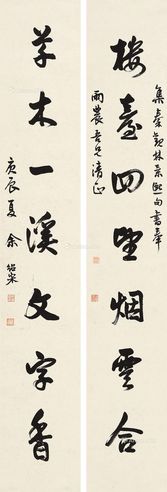 集秦觀林景熙句書奉
樓臺四望烟雲合
雨農吾兄清正
草木一溪文字香
庚辰夏余紹宋